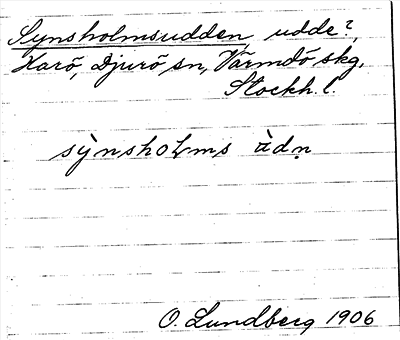 Synsholmsudden, udde?,
Harö, Djurö sn, Värmdö skg,
Stockh. l.
sỳnshoLms àdṇ
O. Lundberg 1906